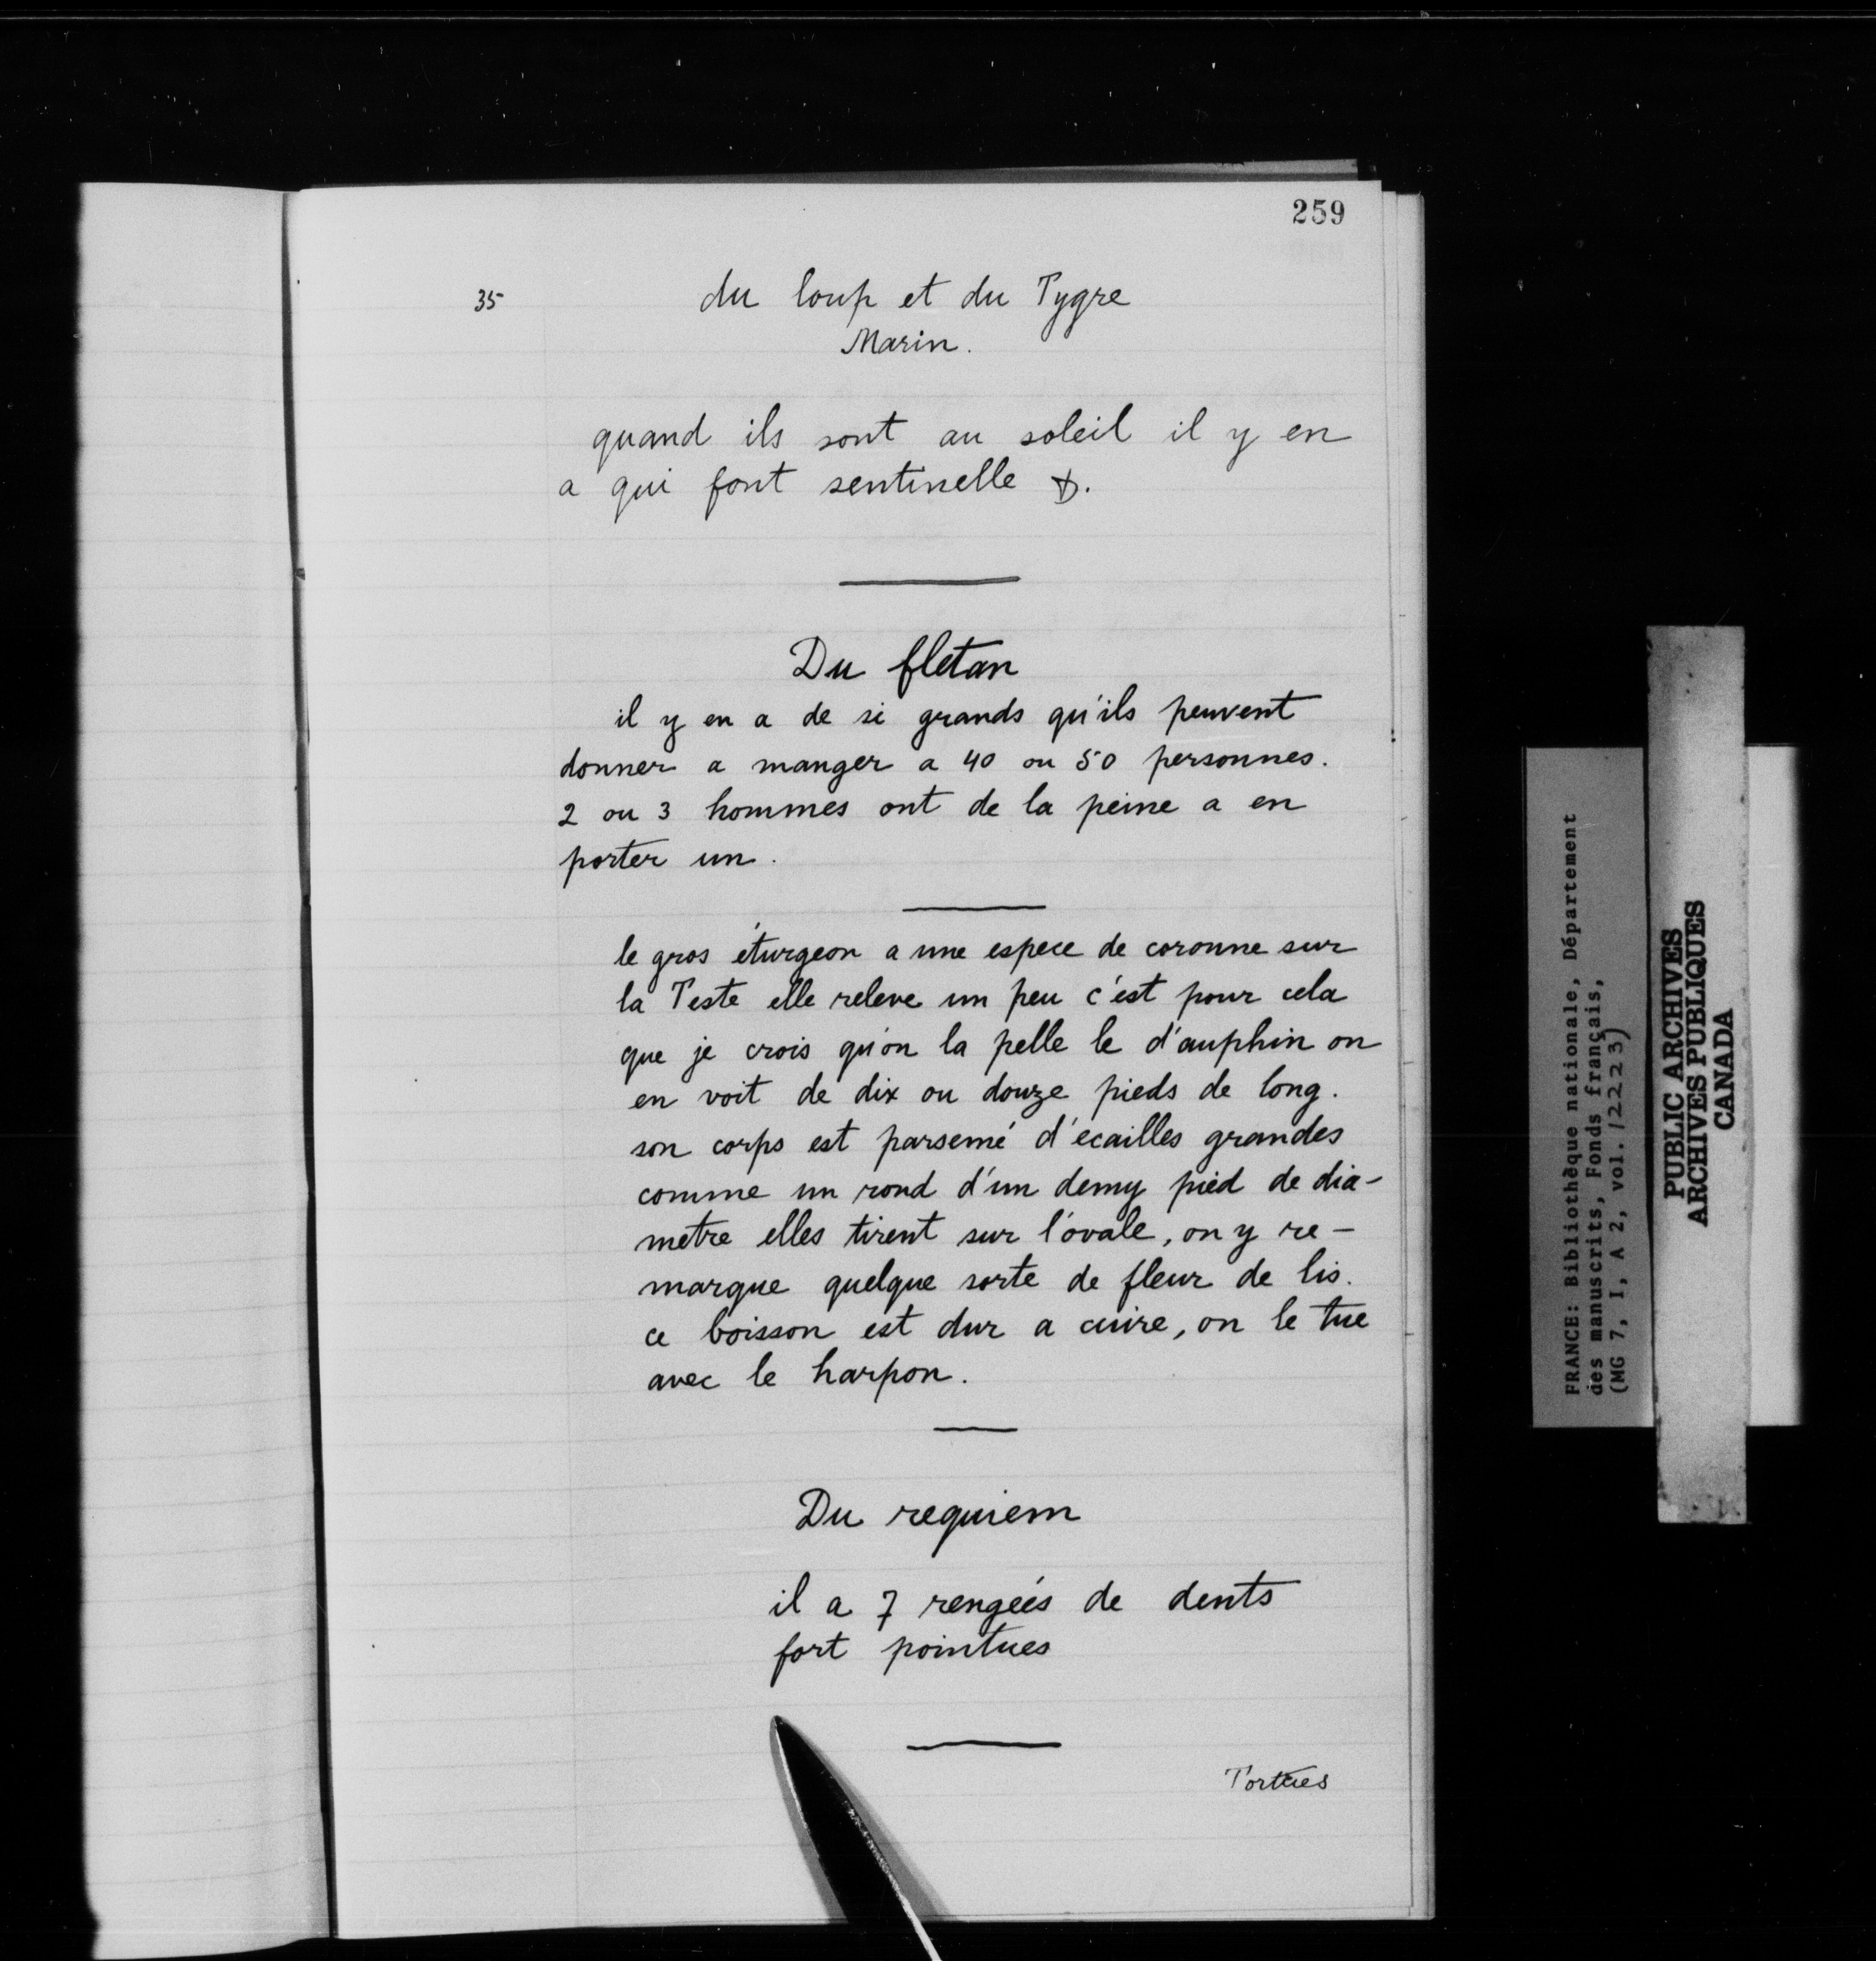 259
35
du loup et du Tygre
Marin.
quand ils sont au soleil il y en
a qui font sentinelle
Du fletan
il y en a de si grands qu'ils peuvent
donner a manger a 40 ou 50 personnes.
2 ou 3 hommes ont de la peine a en
porter un.
le gros éturgeon a une espece de coronne sur
la Teste elle releve un peu c'est pour cela
que je crois qu'on la pelle le d'auphin on
en voit de dix ou douze pieds de long.
son corps est parsemé d'ecailles grandes
comme un rond d'un demy pied de dia-
metre elles tirent sur l'ovale, on y re-
marque quelque sorte de fleur de lis.
ce boisson est dur a cuire, on le tue
avec le harpon.
Du requiem
il a 7 rengeés de dents
fort pointues
Tortues
FRANCE: Bibliothèque nationale, Département
des manuscrits, Fonds français,
(MG 7, I, A 2, vol. 12223)
PUBLIC ARCHIVES
ARCHIVES PUBLIQUES
CANADA